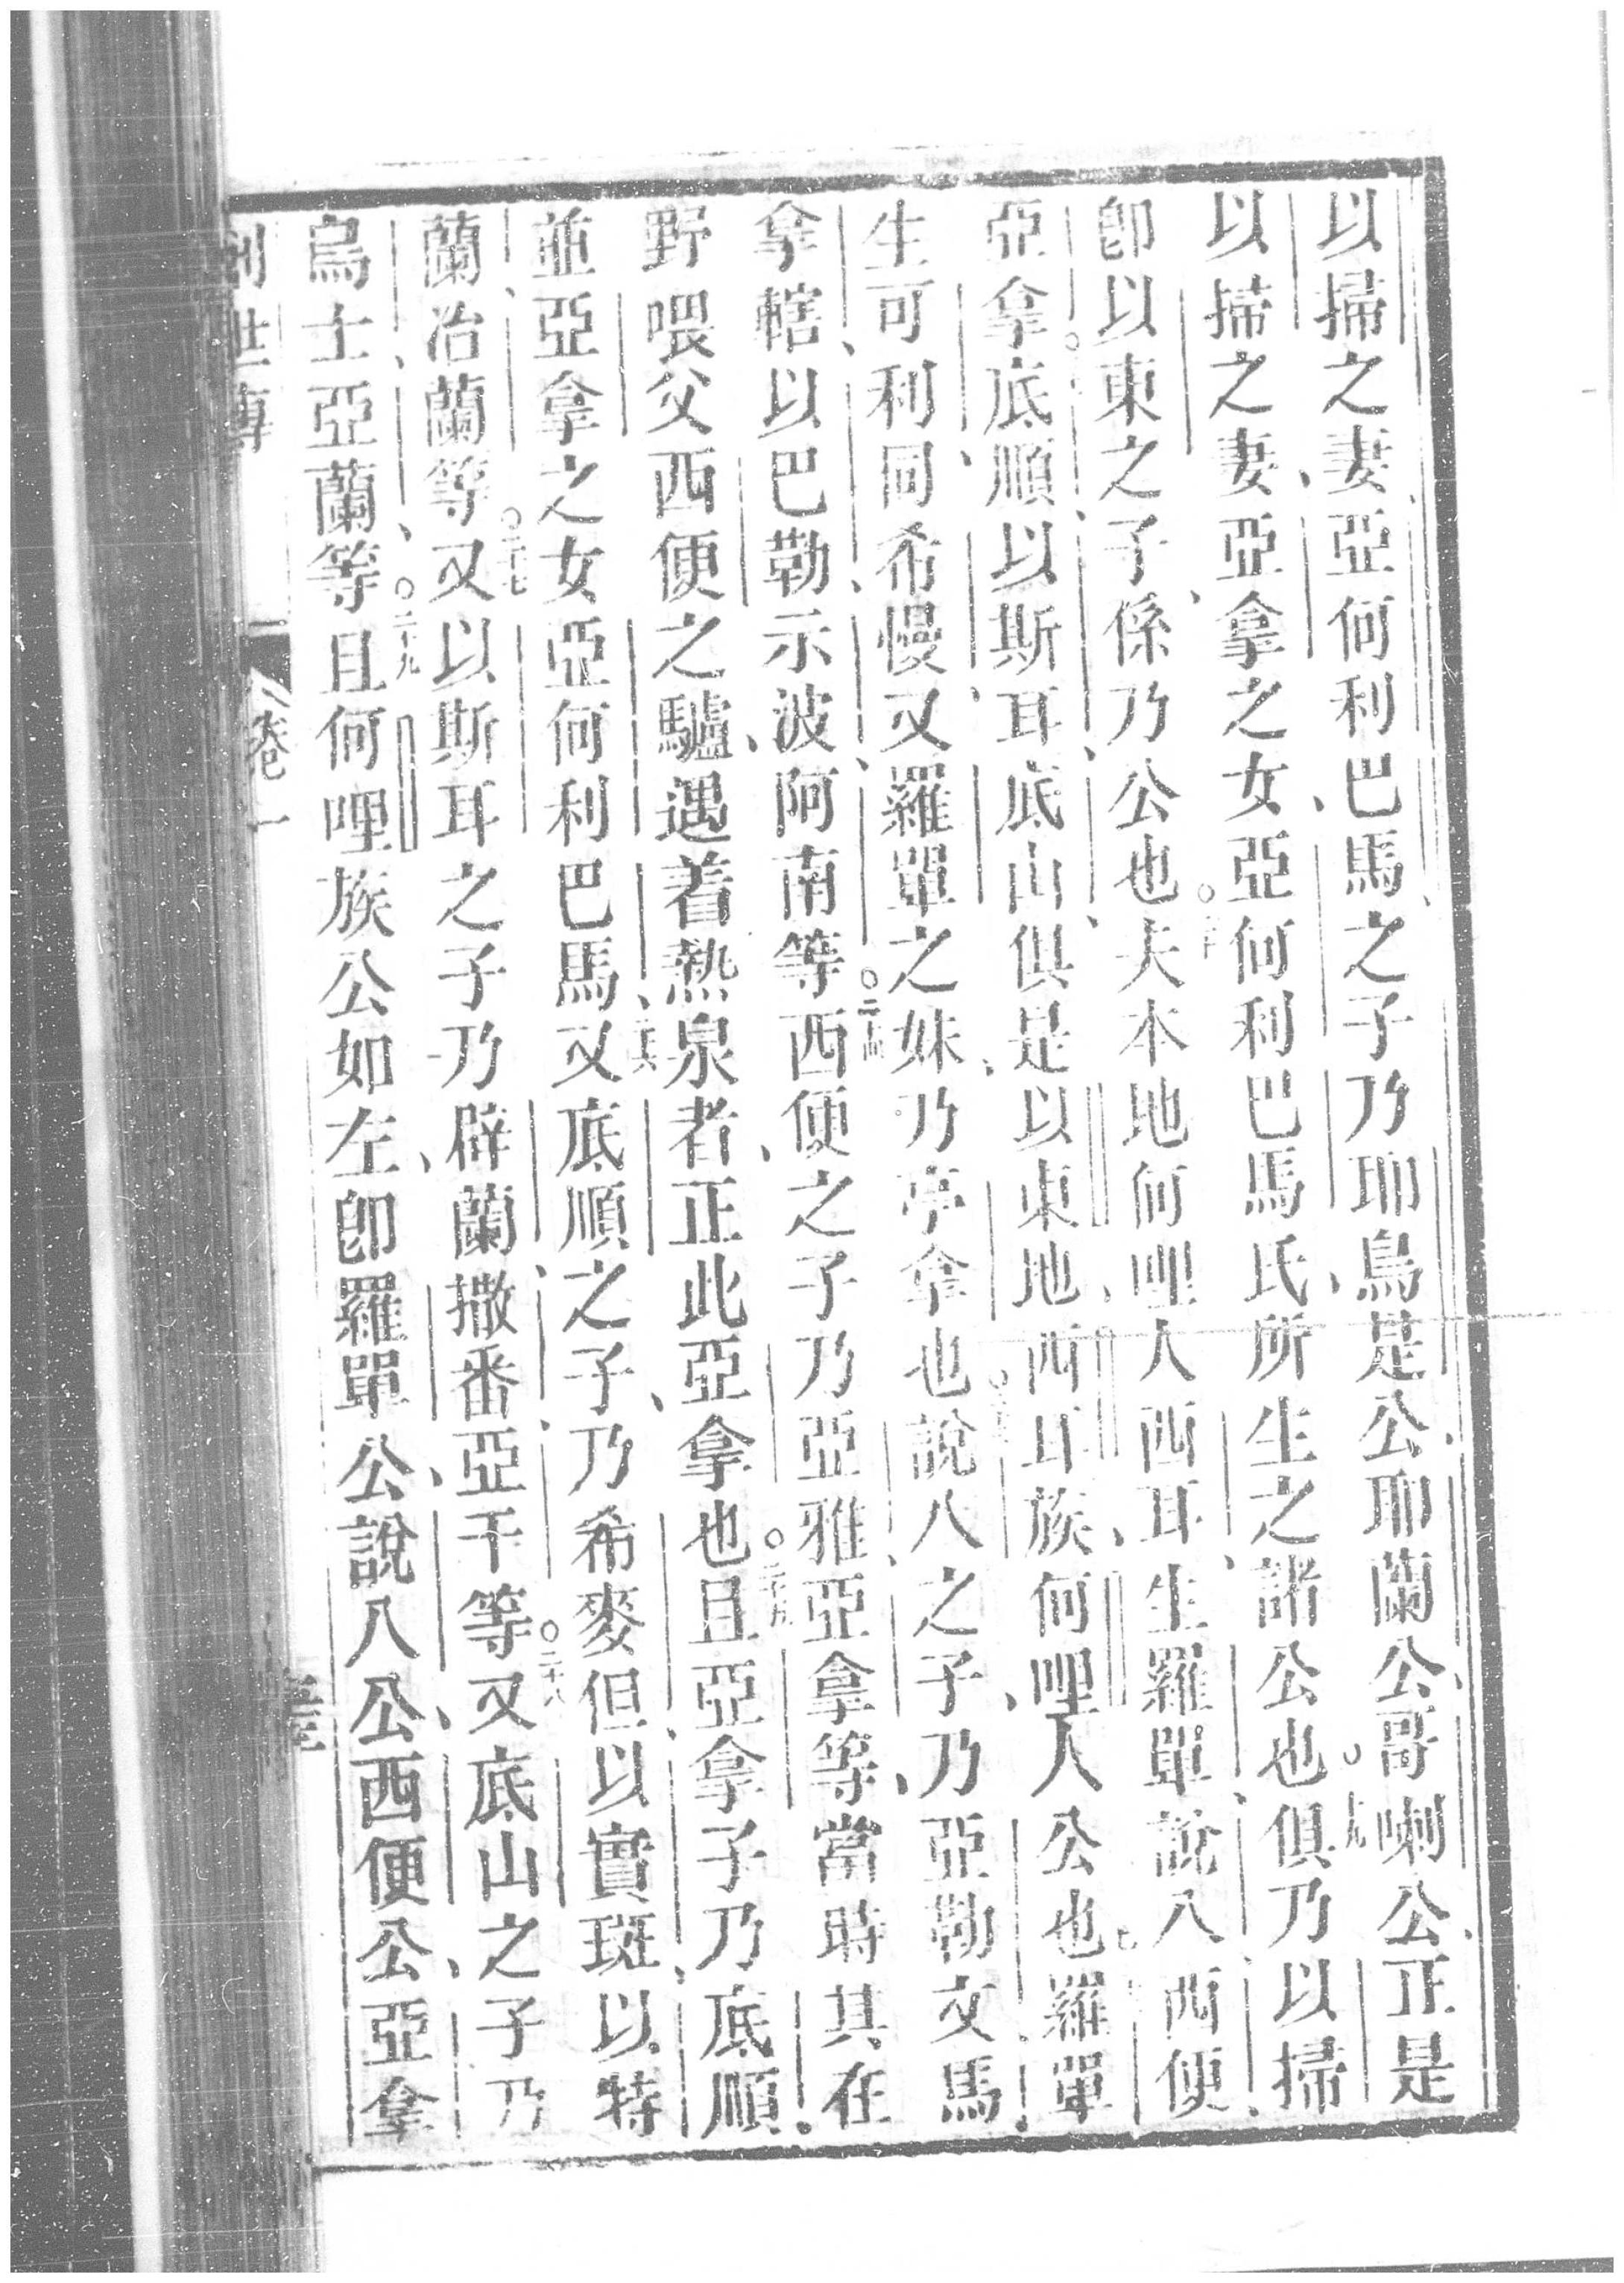 以掃之妻亞何利巴馬之子乃耶烏是公耶蘭公哥喇公正是
以掃之妻亞拿之女亞何利巴馬氏所生之諸公也十九俱乃以掃
卽以東之子係乃公也二十夫本地何哩人西耳生羅單說八西便
亞拿底順以斯耳底山俱是以東地西耳族何哩人公也羅單
生可利同希慢又羅單之妹乃亭拿也說八之子乃亞勒文馬
拿轄以巴勒示波阿南等二十四西便之子乃亞雅亞拿等當時其在
野喂父西便之驢遇着熱泉者正此亞拿也二十五且亞拿子乃底順
並亞拿之女亞何利巴馬二十六又底順之子乃希麥但以實斑以特
蘭冶蘭等二十七又以斯耳之子乃辟蘭撒番亞干等二十八又底山之子乃
烏士亞蘭等二十九且何哩族公如左卽羅單公說八公西便公亞拿
創世傳 卷一